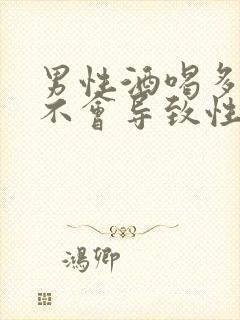 男性酒喝多
不會导致性
鴻卿